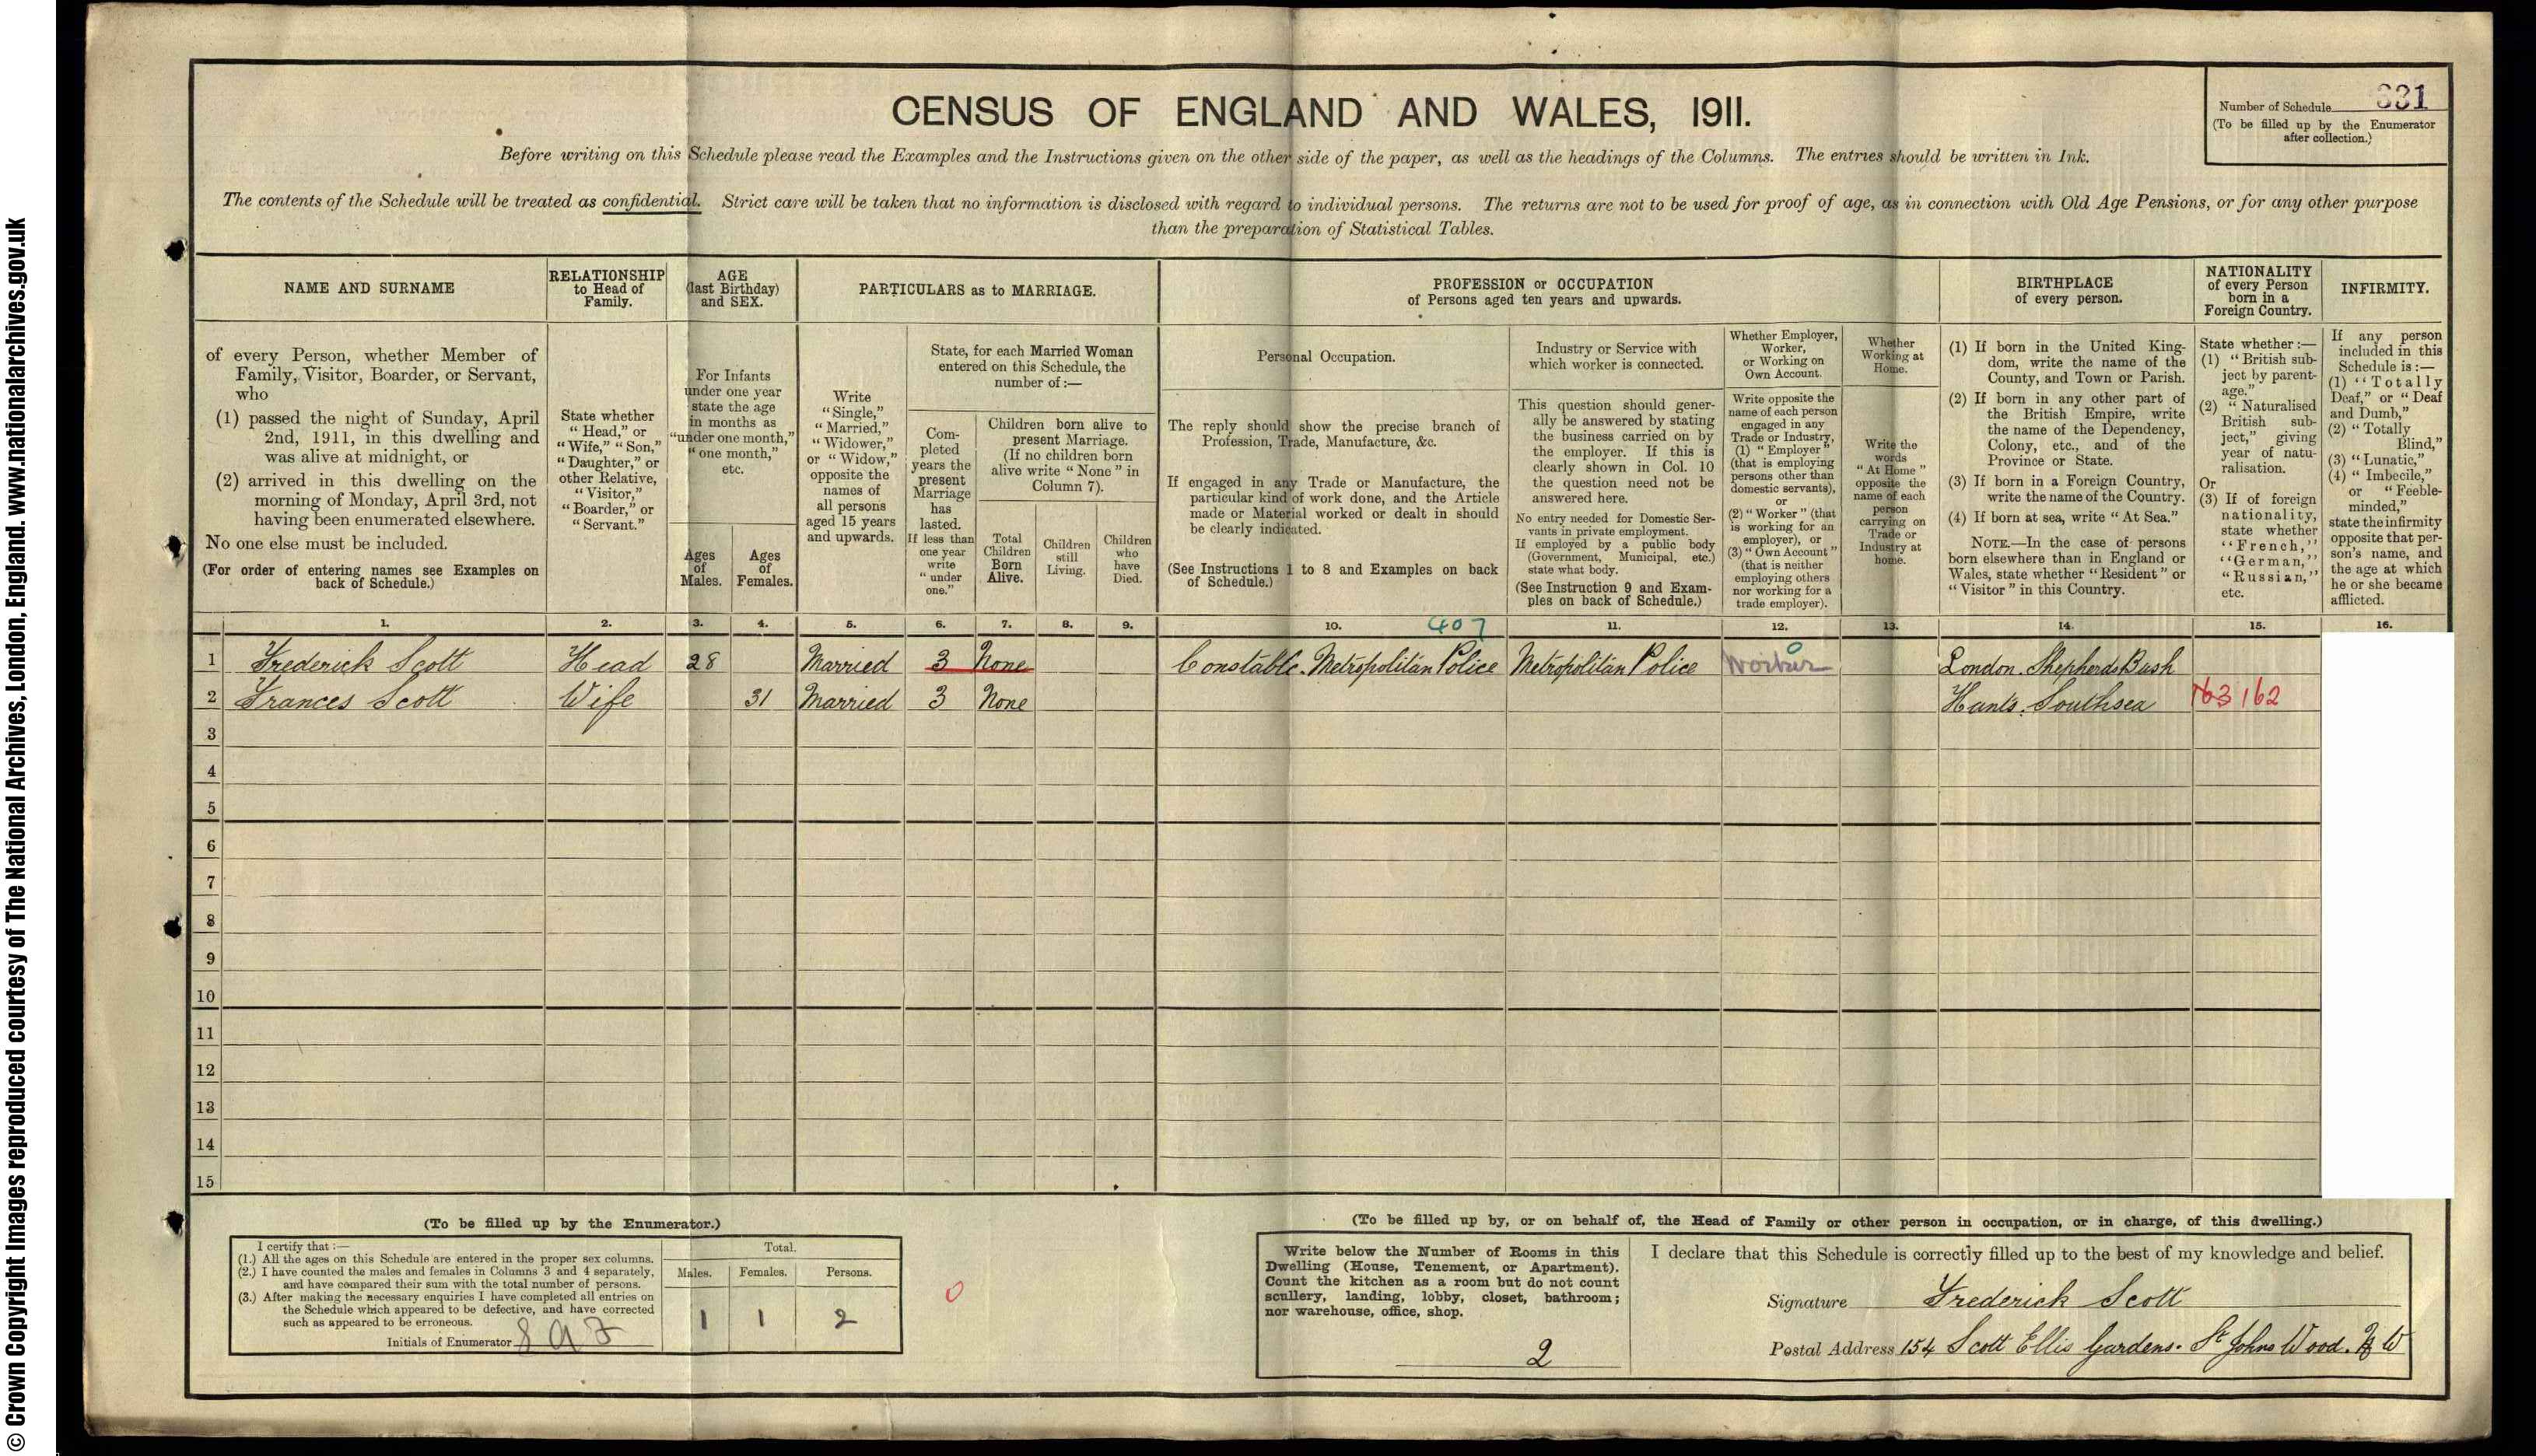 © Crown Copyright Images reproduced courtesy of The National Archives, London, England. www.nationalarchives.gov.uk
CENSUS OF ENGLAND AND WALES, 1911.
Number of Schedule 631
(To be filled up by the Enumerator
after collection.)
Before writing on this Schedule please read the Examples and the Instructions given on the other side of the paper, as well as the headings of the Columns. The entries should be written in Ink.
The contents of the Schedule will be treated as confidential. Strict care will be taken that no information is disclosed with regard to individual persons. The returns are not to be used for proof of age, as in connection with Old Age Pensions, or for any other purpose
than the preparation of Statistical Tables.
NAME AND SURNAME
RELATIONSHIP
to Head of
Family.
AGE
(last Birthday)
and SEX.
PARTICULARS as to MARRIAGE.
PROFESSION or OCCUPATION
of Persons aged ten years and upwards.
BIRTHPLACE
of every person.
NATIONALITY
of every Person
born in a
Foreign Country.
INFIRMITY.
of every Person, whether Member of
Family, Visitor, Boarder, or Servant,
who
(1) passed the night of Sunday, April
2nd, 1911, in this dwelling and
was alive at midnight, or
(2) arrived in this dwelling on the
morning of Monday, April 3rd, not
having been enumerated elsewhere.
No one else must be included.
(For order of entering names see Examples on
back of Schedule.)
State whether
"Head," or
"Wife," "Son,"
"Daughter," or
other Relative,
"Visitor,"
"Boarder," or
"Servant."
For Infants
under one year
state the age
in months as
"under one month,"
"one month,"
etc.
Ages
of
Males.
Ages
of
Females.
Write
"Single,"
"Married,"
"Widower,"
or "Widow,"
opposite the
names of
all persons
aged 15 years
and upwards.
State, for each Married Woman
entered on this Schedule, the
number of:—
Com-
pleted
years the
present
Marriage
has
lasted.
If less than
one year
write
"under
one."
Children born alive to
present Marriage.
(If no children born
alive write "None" in
Column 7).
Total
Children
Born
Alive.
Children
still
Living.
Children
who
have
Died.
Personal Occupation.
The reply should show the precise branch of
Profession, Trade, Manufacture, &c.
If engaged in any Trade or Manufacture, the
particular kind of work done, and the Article
made or Material worked or dealt in should
be clearly indicated.
(See Instructions 1 to 8 and Examples on back
of Schedule.)
Industry or Service with
which worker is connected.
This question should gener-
ally be answered by stating
the business carried on by
the employer. If this is
clearly shown in Col. 10
the question need not be
answered here.
No entry needed for Domestic Ser-
vants in private employment.
If employed by a public body
(Government, Municipal, etc.)
state what body.
(See Instruction 9 and Exam-
ples on back of Schedule.)
Whether Employer,
Worker,
or Working on
Own Account.
Write opposite the
name of each person
engaged in any
Trade or Industry,
(1) "Employer"
(that is employing
persons other than
domestic servants),
or
(2) "Worker" (that
is working for an
employer), or
(3) "Own Account"
(that is neither
employing others
nor working for a
trade employer).
Whether
Working at
Home.
Write the
words
"At Home"
opposite the
name of each
person
carrying on
Trade or
Industry at
home.
(1) If born in the United King-
dom, write the name of the
County, and Town or Parish.
(2) If born in any other part of
the British Empire, write
the name of the Dependency,
Colony, etc., and of the
Province or State.
(3) If born in a Foreign Country,
write the name of the Country.
(4) If born at sea, write "At Sea."
NOTE.—In the case of persons
born elsewhere than in England or
Wales, state whether "Resident" or
"Visitor" in this Country.
State whether:—
(1) "British sub-
ject by parent-
age."
(2) "Naturalised
British sub-
ject," giving
year of natu-
ralisation.
Or
(3) If of foreign
nationality,
state whether
"French,"
"German,"
"Russian,"
etc.
If any person
included in this
Schedule is:—
(1) "Totally
Deaf," or "Deaf
and Dumb,"
(2) "Totally
Blind,"
(3) "Lunatic,"
(4) "Imbecile,"
or "Feeble-
minded,"
state the infirmity
opposite that per-
son's name, and
the age at which
he or she became
afflicted.
1. 2. 3. 4. 5. 6. 7. 8. 9. 10. 407 11. 12. 13. 14. 15. 16.
1 Frederick Scott Head 28 Married 3 None Constable. Metropolitan Police Metropolitan Police Worker 0 London. Shepherds Bush
2 Frances Scott Wife 31 Married 3 None Hants. Southsea 163 162
3
4
5
6
7
8
9
10
11
12
13
14
15
(To be filled up by the Enumerator.)
I certify that:—
(1.) All the ages on this Schedule are entered in the proper sex columns.
(2.) I have counted the males and females in Columns 3 and 4 separately,
and have compared their sum with the total number of persons.
(3.) After making the necessary enquiries I have completed all entries on
the Schedule which appeared to be defective, and have corrected
such as appeared to be erroneous.
Initials of Enumerator
Total.
Males. Females. Persons.
1 1 2
0
(To be filled up by, or on behalf of, the Head of Family or other person in occupation, or in charge, of this dwelling.)
Write below the Number of Rooms in this
Dwelling (House, Tenement, or Apartment).
Count the kitchen as a room but do not count
scullery, landing, lobby, closet, bathroom;
nor warehouse, office, shop.
2
I declare that this Schedule is correctly filled up to the best of my knowledge and belief.
Signature Frederick Scott
Postal Address 154 Scott Ellis Gardens. St Johns Wood. N W